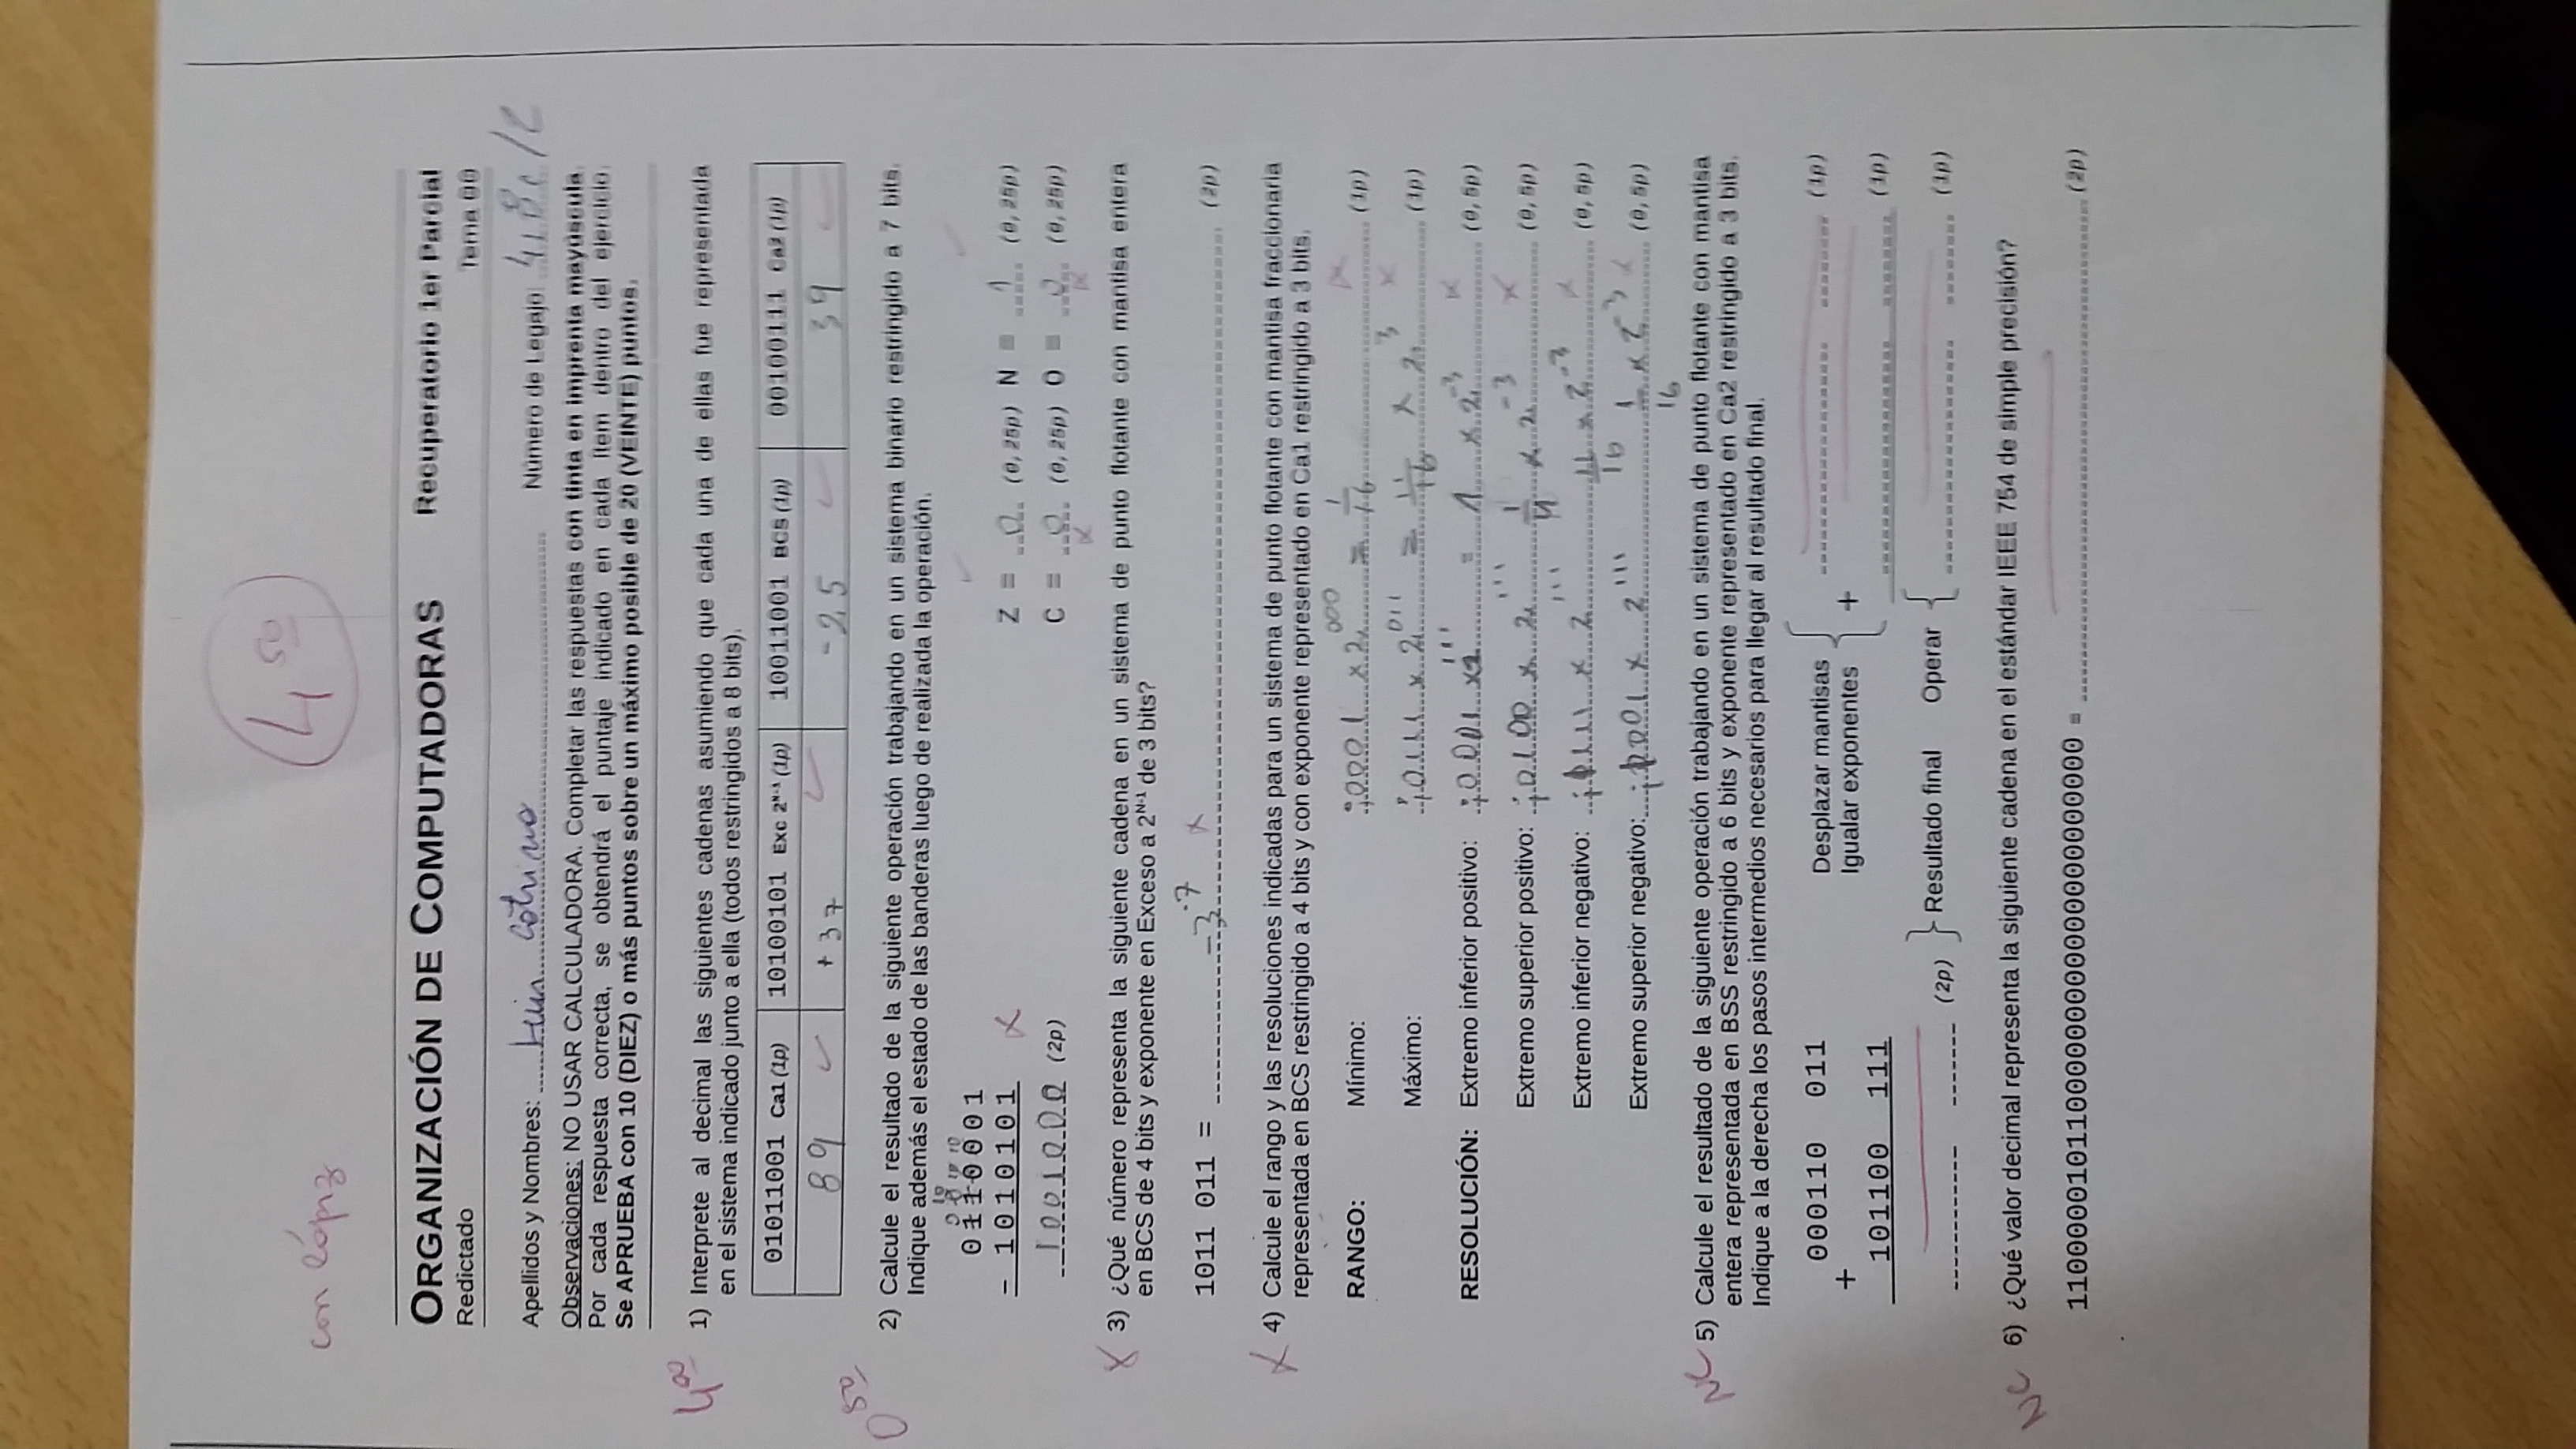 4 50
con lápiz
ORGANIZACIÓN DE COMPUTADORAS Recuperatorio 1er Parcial
Redictado Tema 00
Apellidos y Nombres: Luis Cotrino Número de Legajo:
Observaciones: NO USAR CALCULADORA. Completar las respuestas con tinta en imprenta mayúscula.
Por cada respuesta correcta, se obtendrá el puntaje indicado en cada ítem dentro del ejercicio.
Se APRUEBA con 10 (DIEZ) o más puntos sobre un máximo posible de 20 (VEINTE) puntos.
4 00
1) Interprete al decimal las siguientes cadenas asumiendo que cada una de ellas fue representada
en el sistema indicado junto a ella (todos restringidos a 8 bits).
01011001 Ca1 (1p) 10100101 Exc 2ᴺ⁻¹ (1p) 10011001 BCS (1p) 00100111 Ca2 (1p)
89 +37 -25 39
0 50
2) Calcule el resultado de la siguiente operación trabajando en un sistema binario restringido a 7 bits.
Indique además el estado de las banderas luego de realizada la operación.
10
0 0 10 10
0110001
- 1010101 Z = 0 (0,25p) N = 1 (0,25p)
1001000 (2p) C = 0 (0,25p) O = 0 (0,25p)
3) ¿Qué número representa la siguiente cadena en un sistema de punto flotante con mantisa entera
en BCS de 4 bits y exponente en Exceso a 2ᴺ⁻¹ de 3 bits?
1011 011 = -3·7 (2p)
4) Calcule el rango y las resoluciones indicadas para un sistema de punto flotante con mantisa fraccionaria
representada en BCS restringido a 4 bits y con exponente representado en Ca1 restringido a 3 bits.
RANGO: Mínimo: ;0001 x 2 000 = 1/16 (1p)
Máximo: ;0111 x 2 011 = 11/16 x 2 3 (1p)
RESOLUCIÓN: Extremo inferior positivo: ;0001 x 2 111 = 1 x 2 -3 (0,5p)
Extremo superior positivo: ;0100 x 2 111 1/4 x 2 -3 (0,5p)
Extremo inferior negativo: ;1111 x 2 111 11/16 x 2 -3 (0,5p)
Extremo superior negativo: ;1001 x 2 111 1/16 x 2 -3 (0,5p)
NC
5) Calcule el resultado de la siguiente operación trabajando en un sistema de punto flotante con mantisa
entera representada en BSS restringido a 6 bits y exponente representado en Ca2 restringido a 3 bits.
Indique a la derecha los pasos intermedios necesarios para llegar al resultado final.
000110 011 Desplazar mantisas (1p)
+ Igualar exponentes +
101100 111 (1p)
(2p) Resultado final Operar (1p)
NC
6) ¿Qué valor decimal representa la siguiente cadena en el estándar IEEE 754 de simple precisión?
11000001011000000000000000000000 = (2p)